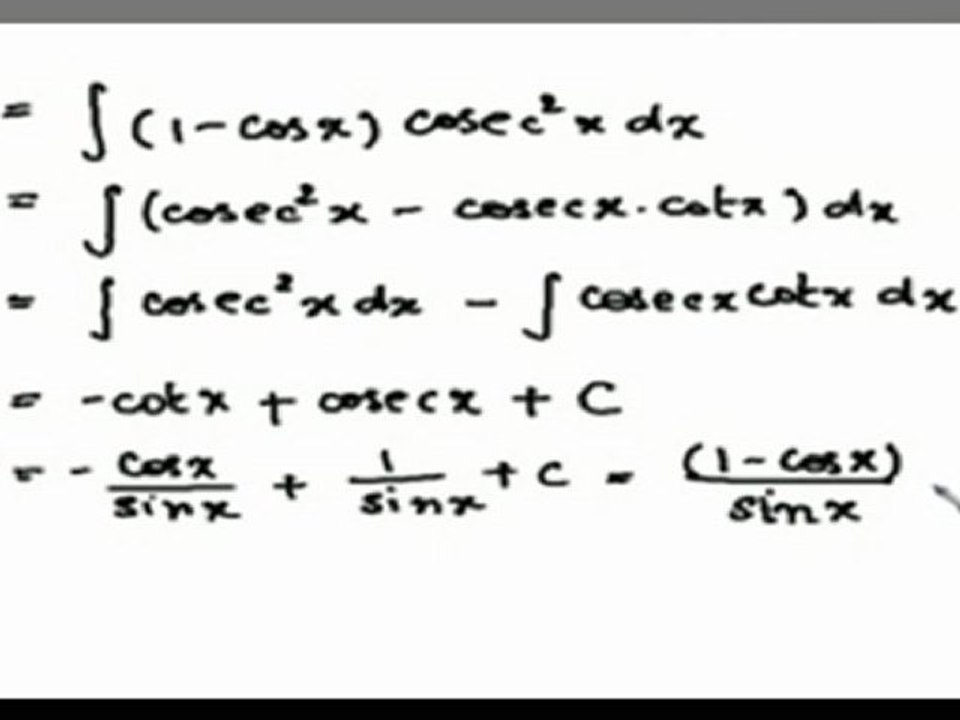 = ∫ (1 - cosx) cosec²x dx
= ∫ (cosec²x - cosecx.cotx) dx
= ∫ cosec²x dx - ∫ cosecx cotx dx
= -cotx + cosecx + C
= - cosx/sinx + 1/sinx + C = (1 - cosx)/sinx